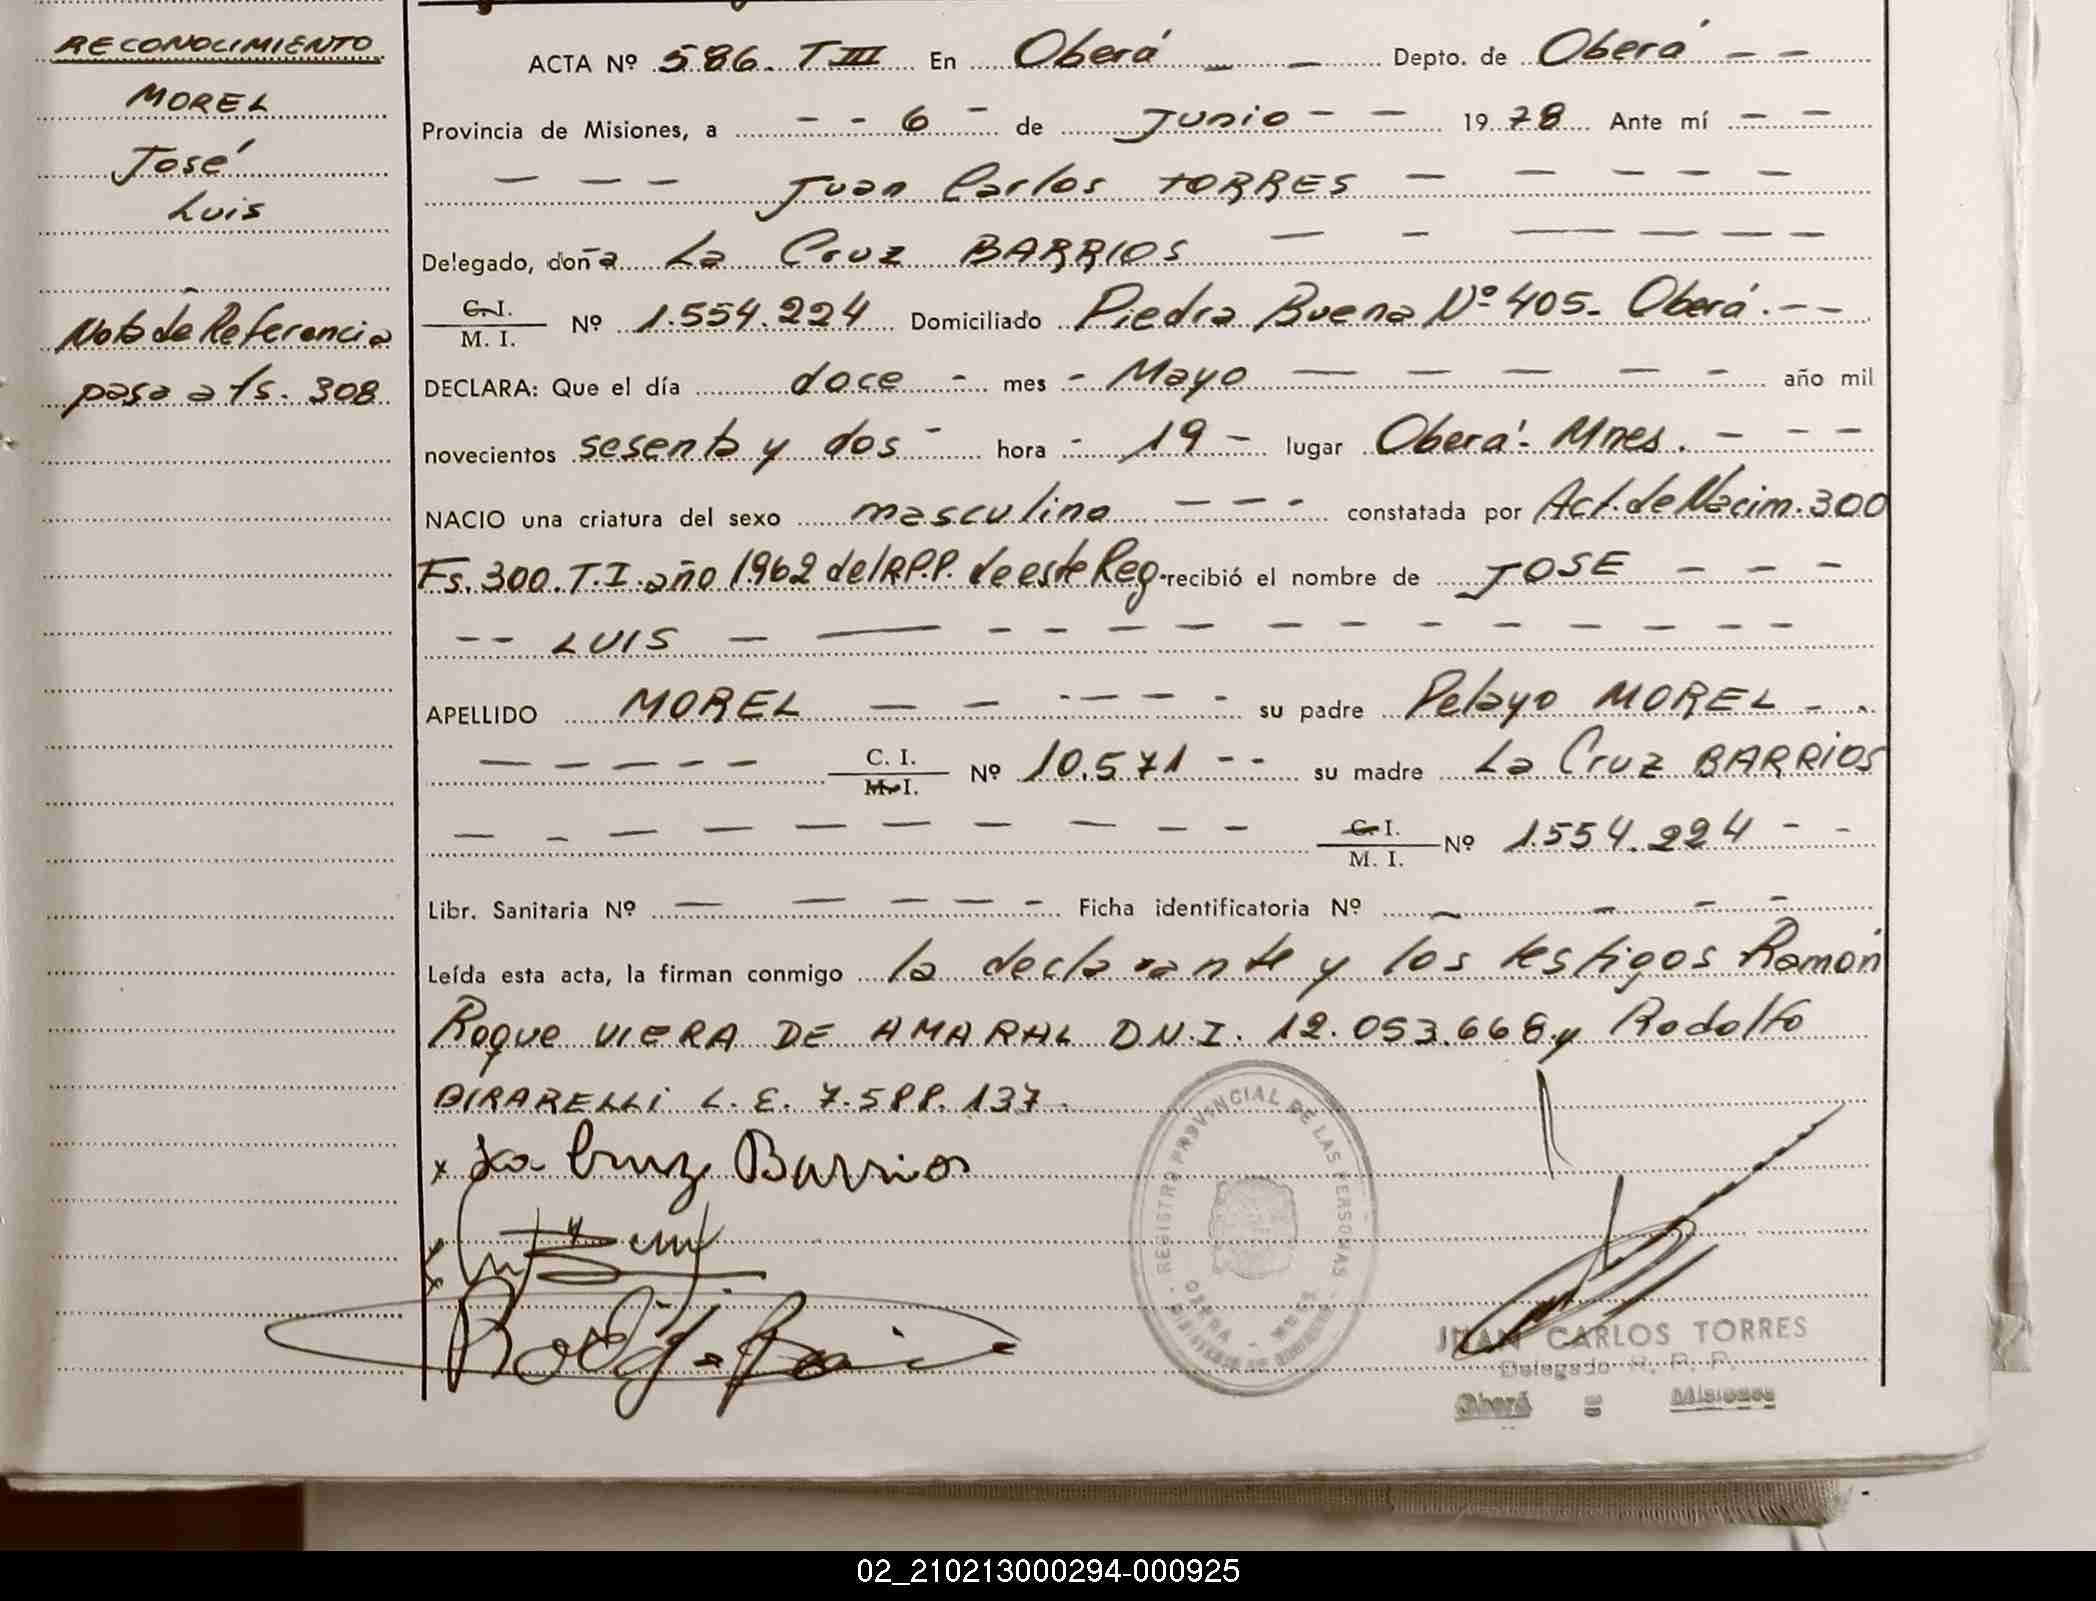 RECONOCIMIENTO
MOREL
José
Luis
Nota de Referencia
pasa a fs. 308
ACTA Nº 586. T III En Oberá Depto. de Oberá
Provincia de Misiones, a 6 de Junio 1978 Ante mí
Juan Carlos TORRES
Delegado, doña La Cruz BARRIOS
C. I.
M. I. Nº 1.554.224 Domiciliado Piedra Buena Nº 405. Oberá.
DECLARA: Que el día doce mes Mayo año mil
novecientos sesenta y dos hora 19 lugar Oberá. Mnes.
NACIO una criatura del sexo masculino constatada por Act. de Nacim. 300
Fs. 300. T. I. año 1962 del R.P.P. de este Reg. recibió el nombre de JOSE
LUIS
APELLIDO MOREL su padre Pelayo MOREL
C. I.
M. I. Nº 10.571 su madre La Cruz BARRIOS
C. I.
M. I. Nº 1.554.224
Libr. Sanitaria Nº Ficha identificatoria Nº
Leída esta acta, la firman conmigo la declarante y los testigos Ramón
Roque VIERA DE AMARAL D.N.I. 12.053.668 y Rodolfo
L. E. 137.
La Cruz Barrios
REGISTRO PROVINCIAL DE LAS PERSONAS
OBERA - MNES
JUAN CARLOS TORRES
Delegado R. P. P.
Oberá = Misiones
02_210213000294-000925